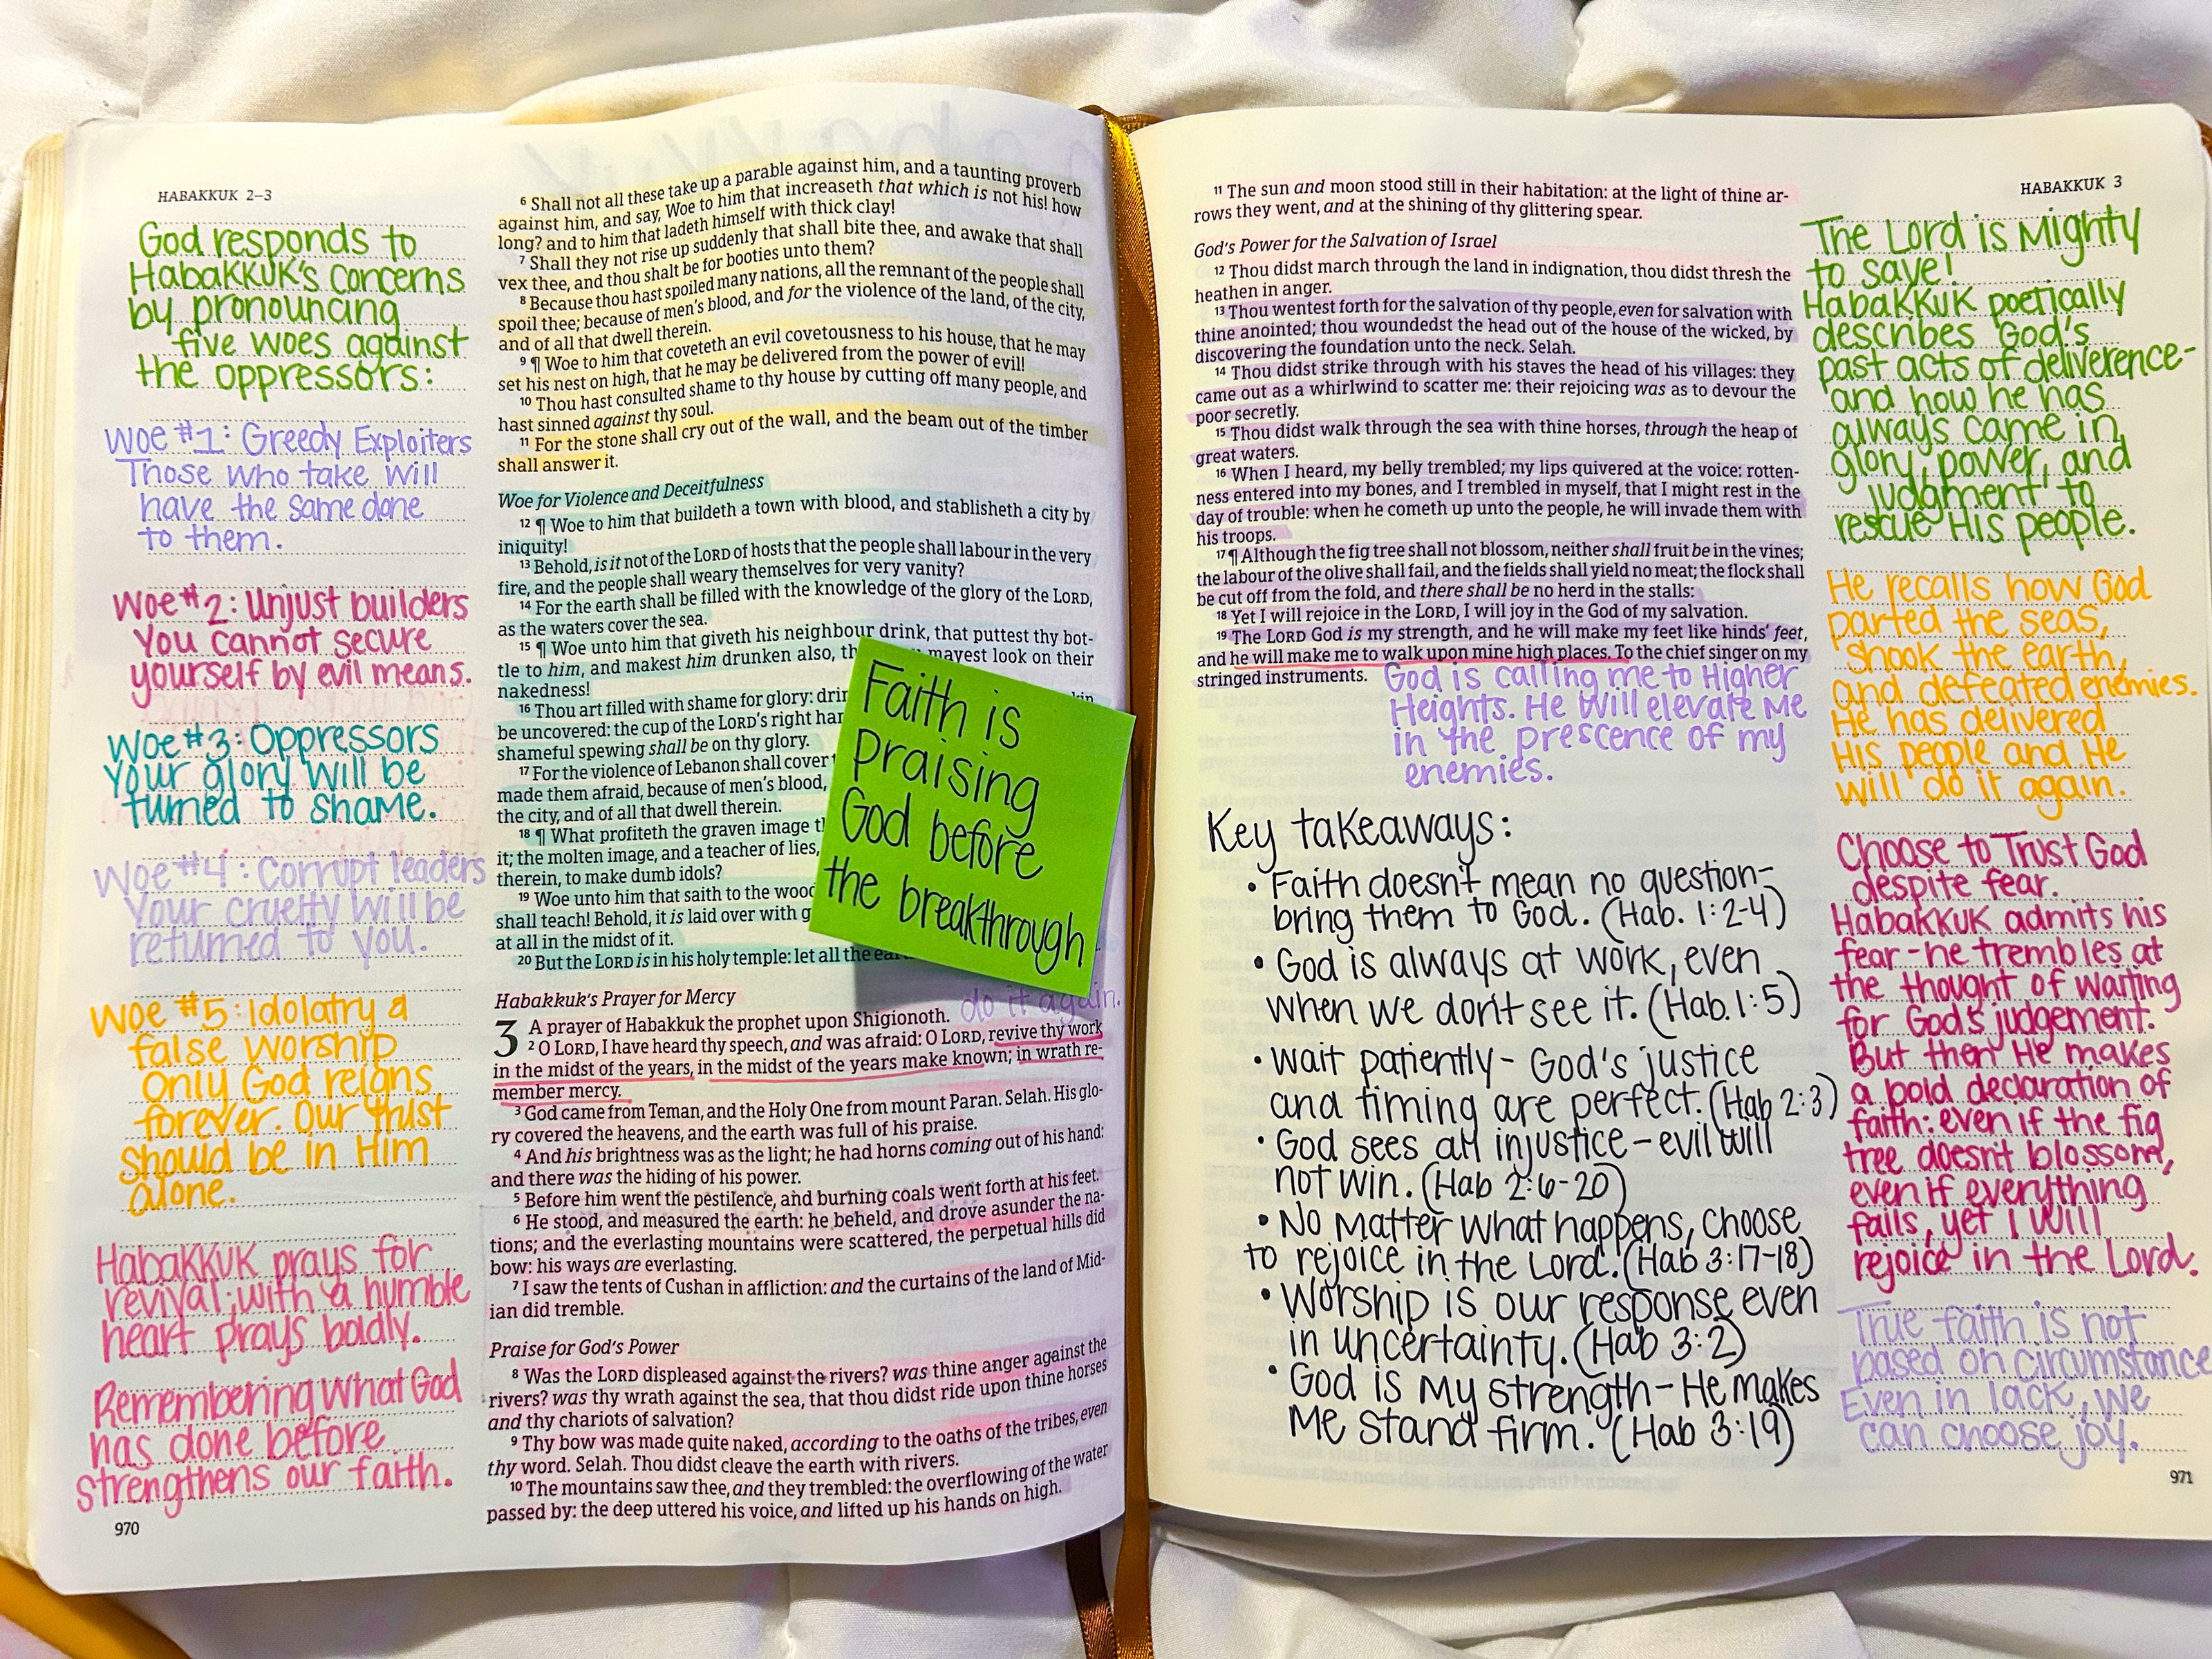 HABAKKUK 2–3
God responds to
Habakkuk's concerns
by pronouncing
five woes against
the oppressors:
Woe #1: Greedy Exploiters
Those who take will
have the same done
to them.
Woe #2: Unjust builders
You cannot secure
yourself by evil means.
Woe #3: Oppressors
Your glory will be
turned to shame.
Woe #4: Corrupt leaders
Your cruelty will be
returned to you.
Woe #5: Idolatry &
false worship
Only God reigns
forever. Our trust
should be in Him
alone.
Habakkuk prays for
revival; with a humble
heart prays boldly.
Remembering what God
has done before
strengthens our faith.
970
6 Shall not all these take up a parable against him, and a taunting proverb
against him, and say, Woe to him that increaseth that which is not his! how
long? and to him that ladeth himself with thick clay!
7 Shall they not rise up suddenly that shall bite thee, and awake that shall
vex thee, and thou shalt be for booties unto them?
8 Because thou hast spoiled many nations, all the remnant of the people shall
spoil thee; because of men's blood, and for the violence of the land, of the city,
and of all that dwell therein.
9 ¶ Woe to him that coveteth an evil covetousness to his house, that he may
set his nest on high, that he may be delivered from the power of evil!
10 Thou hast consulted shame to thy house by cutting off many people, and
hast sinned against thy soul.
11 For the stone shall cry out of the wall, and the beam out of the timber
shall answer it.
Woe for Violence and Deceitfulness
12 ¶ Woe to him that buildeth a town with blood, and stablisheth a city by
iniquity!
13 Behold, is it not of the LORD of hosts that the people shall labour in the very
fire, and the people shall weary themselves for very vanity?
14 For the earth shall be filled with the knowledge of the glory of the LORD,
as the waters cover the sea.
15 ¶ Woe unto him that giveth his neighbour drink, that puttest thy bot-
tle to him, and makest him drunken also, th mayest look on their
nakedness!
16 Thou art filled with shame for glory: drin kin
be uncovered: the cup of the LORD's right han
shameful spewing shall be on thy glory.
17 For the violence of Lebanon shall cover
made them afraid, because of men's blood,
the city, and of all that dwell therein.
18 ¶ What profiteth the graven image th
it; the molten image, and a teacher of lies,
therein, to make dumb idols?
19 Woe unto him that saith to the wood
shall teach! Behold, it is laid over with g
at all in the midst of it.
20 But the LORD is in his holy temple: let all the ear
Faith is
praising
God before
the breakthrough
Habakkuk's Prayer for Mercy
do it again.
3 A prayer of Habakkuk the prophet upon Shigionoth.
2 O LORD, I have heard thy speech, and was afraid: O LORD, revive thy work
in the midst of the years, in the midst of the years make known; in wrath re-
member mercy.
3 God came from Teman, and the Holy One from mount Paran. Selah. His glo-
ry covered the heavens, and the earth was full of his praise.
4 And his brightness was as the light; he had horns coming out of his hand:
and there was the hiding of his power.
5 Before him went the pestilence, and burning coals went forth at his feet.
6 He stood, and measured the earth: he beheld, and drove asunder the na-
tions; and the everlasting mountains were scattered, the perpetual hills did
bow: his ways are everlasting.
7 I saw the tents of Cushan in affliction: and the curtains of the land of Mid-
ian did tremble.
Praise for God's Power
8 Was the LORD displeased against the rivers? was thine anger against the
rivers? was thy wrath against the sea, that thou didst ride upon thine horses
and thy chariots of salvation?
9 Thy bow was made quite naked, according to the oaths of the tribes, even
thy word. Selah. Thou didst cleave the earth with rivers.
10 The mountains saw thee, and they trembled: the overflowing of the water
passed by: the deep uttered his voice, and lifted up his hands on high.
HABAKKUK 3
11 The sun and moon stood still in their habitation: at the light of thine ar-
rows they went, and at the shining of thy glittering spear.
God's Power for the Salvation of Israel
12 Thou didst march through the land in indignation, thou didst thresh the
heathen in anger.
13 Thou wentest forth for the salvation of thy people, even for salvation with
thine anointed; thou woundedst the head out of the house of the wicked, by
discovering the foundation unto the neck. Selah.
14 Thou didst strike through with his staves the head of his villages: they
came out as a whirlwind to scatter me: their rejoicing was as to devour the
poor secretly.
15 Thou didst walk through the sea with thine horses, through the heap of
great waters.
16 When I heard, my belly trembled; my lips quivered at the voice: rotten-
ness entered into my bones, and I trembled in myself, that I might rest in the
day of trouble: when he cometh up unto the people, he will invade them with
his troops.
17 ¶ Although the fig tree shall not blossom, neither shall fruit be in the vines;
the labour of the olive shall fail, and the fields shall yield no meat; the flock shall
be cut off from the fold, and there shall be no herd in the stalls:
18 Yet I will rejoice in the LORD, I will joy in the God of my salvation.
19 The LORD God is my strength, and he will make my feet like hinds' feet,
and he will make me to walk upon mine high places. To the chief singer on my
stringed instruments.
God is calling me to Higher
Heights. He will elevate me
in the prescence of my
enemies.
Key takeaways:
• Faith doesn't mean no question-
bring them to God. (Hab. 1:2-4)
• God is always at work, even
when we don't see it. (Hab. 1:5)
• wait patiently - God's justice
and timing are perfect. (Hab 2:3)
• God sees all injustice - evil will
not win. (Hab 2:6-20)
• No matter what happens, choose
to rejoice in the Lord. (Hab 3:17-18)
• Worship is our response even
in uncertainty. (Hab 3:2)
• God is my strength - He makes
me stand firm. (Hab 3:19)
The Lord is Mighty
to save!
Habakkuk poetically
describes God's
past acts of deliverence-
and how he has
always came in
glory, power, and
judgment to
rescue His people.
He recalls how God
parted the seas,
shook the earth,
and defeated enemies.
He has delivered
His people and He
will do it again.
Choose to Trust God
despite fear.
Habakkuk admits his
fear - he trembles at
the thought of waiting
for God's judgement.
But then He makes
a bold declaration of
faith: even if the fig
tree doesn't blossom,
even if everything
fails, yet I will
rejoice in the Lord.
True faith is not
based on circumstance
Even in lack, we
can choose joy.
971